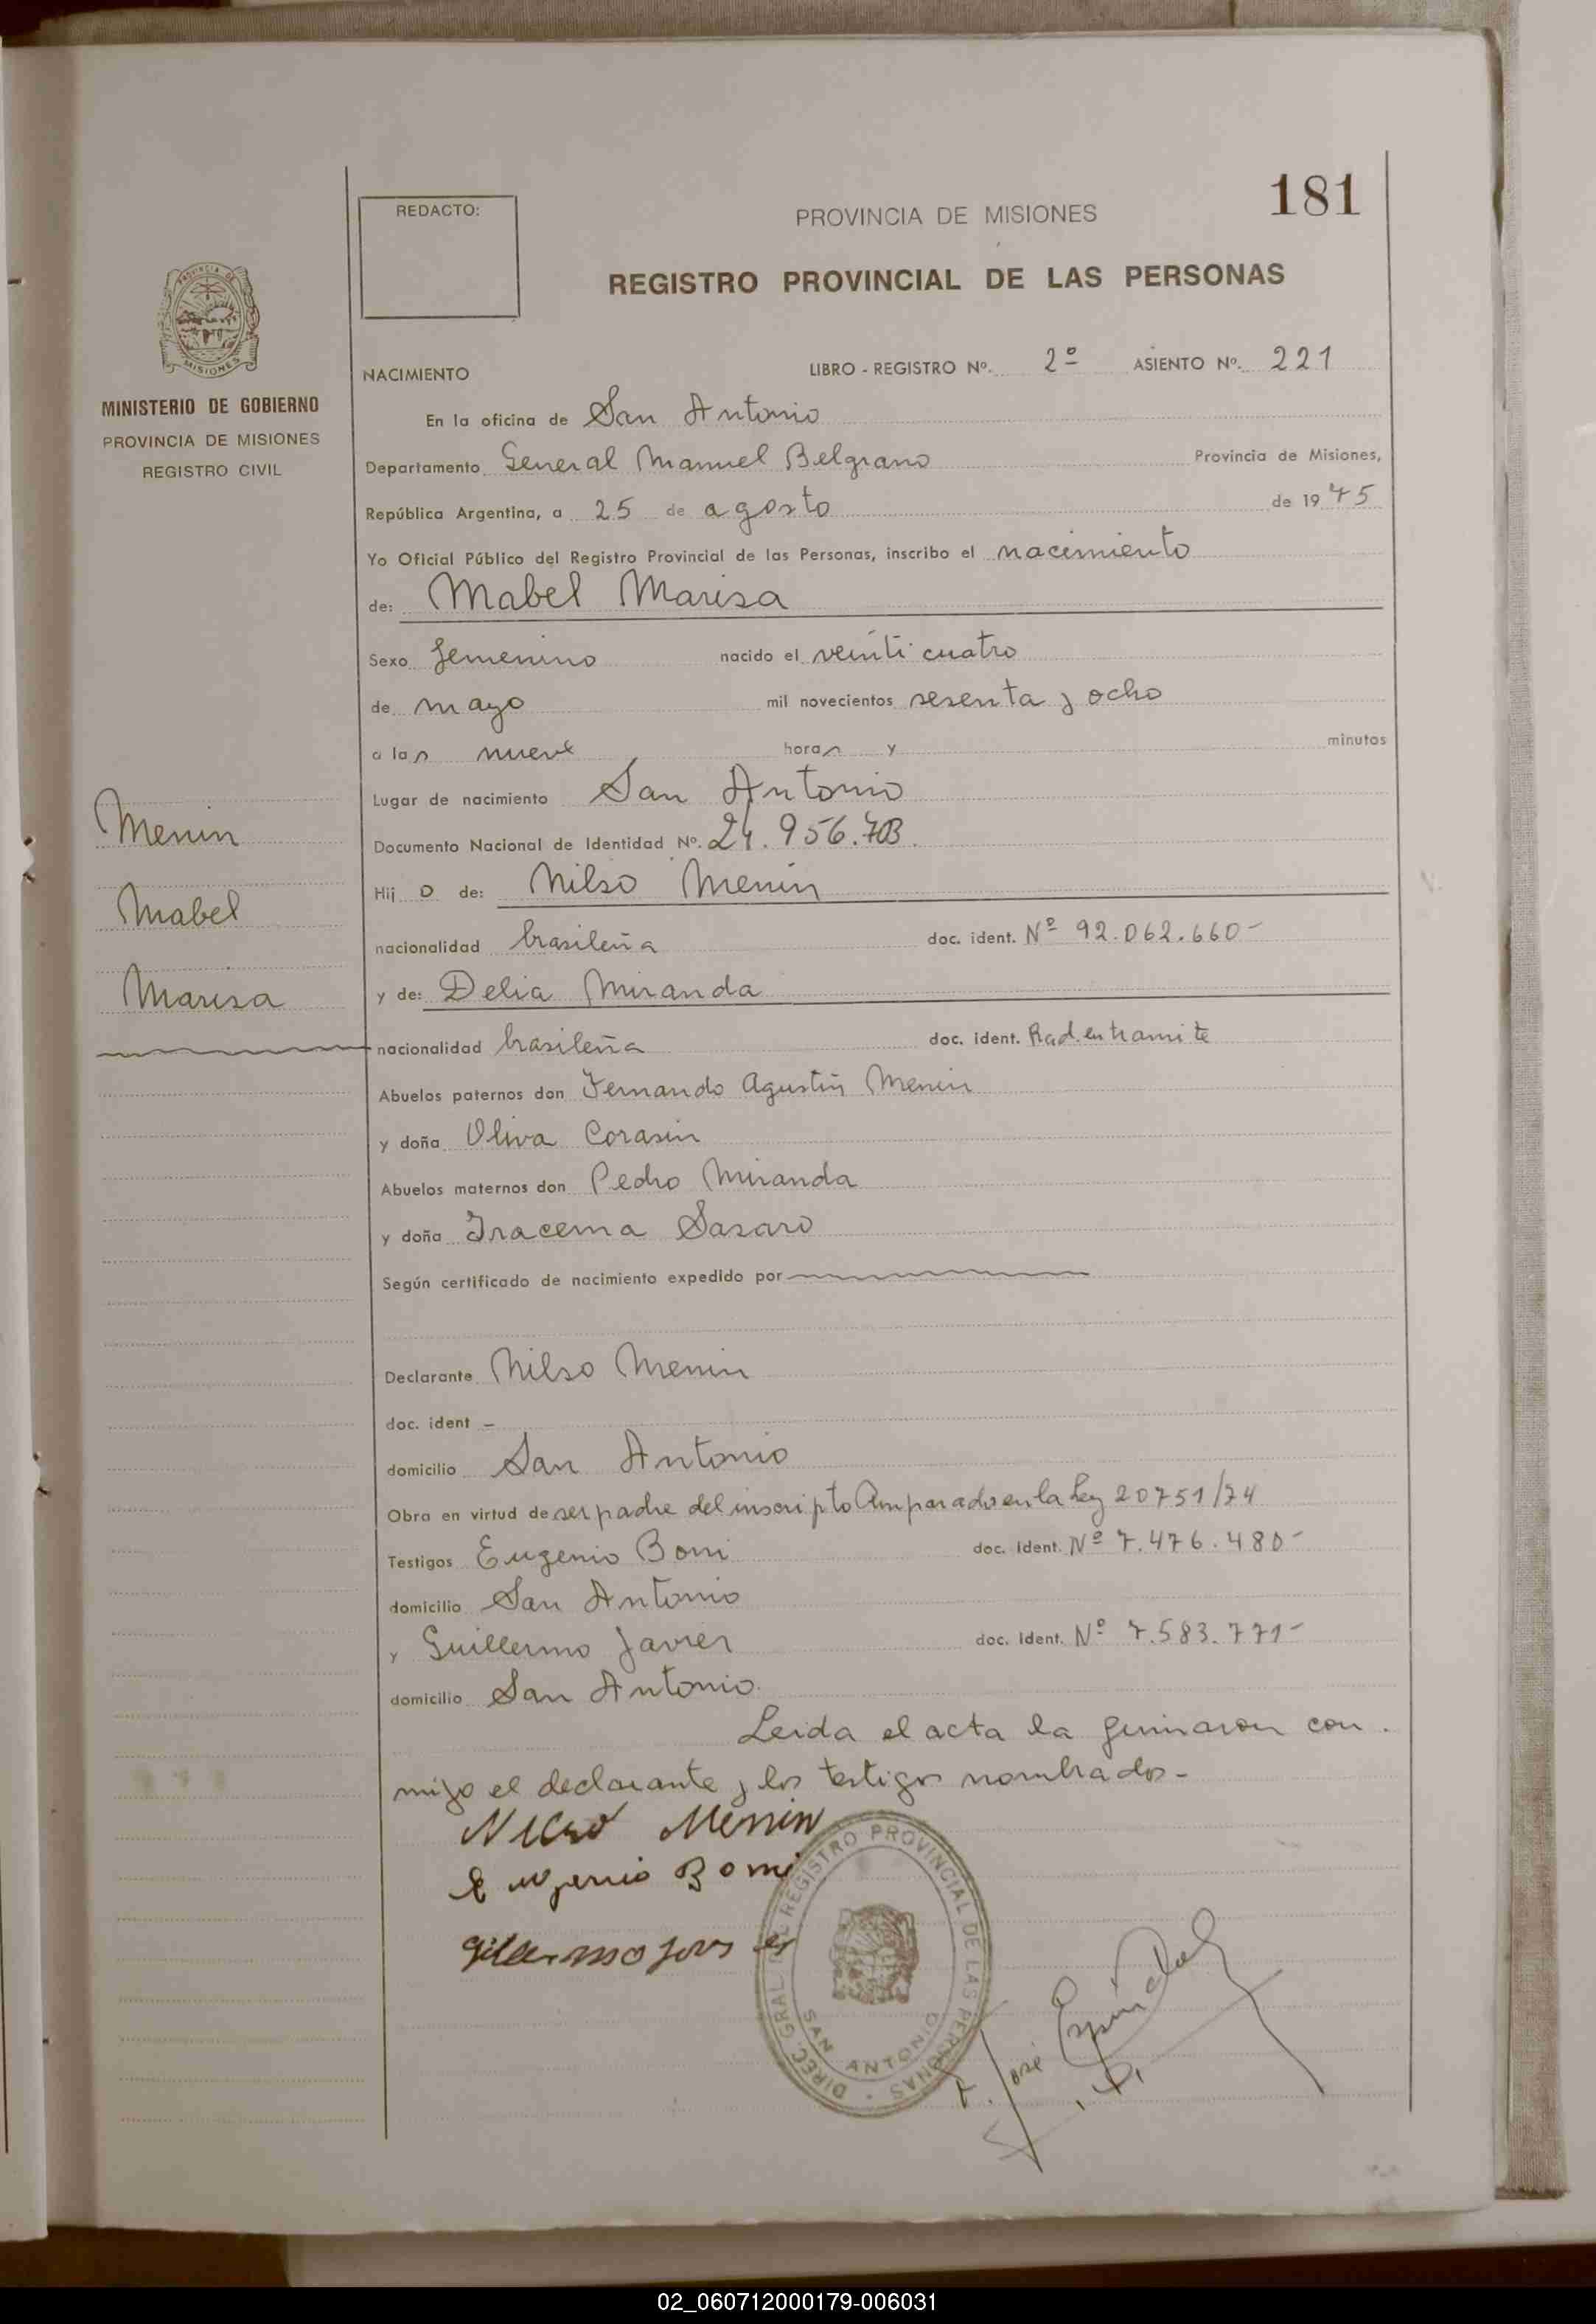 181
REDACTO:
PROVINCIA DE MISIONES
REGISTRO PROVINCIAL DE LAS PERSONAS
PROVINCIA DE
MISIONES
MINISTERIO DE GOBIERNO
PROVINCIA DE MISIONES
REGISTRO CIVIL
NACIMIENTO LIBRO - REGISTRO Nº. 2º ASIENTO Nº. 221
En la oficina de San Antonio
Departamento General Manuel Belgrano Provincia de Misiones,
República Argentina, a 25 de agosto de 1975
Yo Oficial Público del Registro Provincial de las Personas, inscribo el nacimiento
de: Mabel Marisa
Sexo femenino nacido el veinticuatro
de mayo mil novecientos sesenta y ocho
a las nueve horas y minutos
Lugar de nacimiento San Antonio
Documento Nacional de Identidad Nº. 24.956.703
Hij o de: Nilso Menin
nacionalidad brasileña doc. ident. Nº 92.062.660-
y de: Delia Miranda
nacionalidad brasileña doc. ident. Rad. en tramite
Abuelos paternos don Fernando Agustin Menin
y doña Oliva Corasin
Abuelos maternos don Pedro Miranda
y doña Iracema Sasaro
Según certificado de nacimiento expedido por
Declarante Nilso Menin
doc. ident -
domicilio San Antonio
Obra en virtud de ser padre del inscripto Amparado en la Ley 20751/74
Testigos Eugenio Boni doc. ident. Nº 7.476.480-
domicilio San Antonio
y Guillermo Javier doc. ident. Nº 7.583.771-
domicilio San Antonio.
Leida el acta la firmaron con
migo el declarante y los testigos nombrados-
Menin
Mabel
Marisa
Nilso Menin
Eugenio Boni
DIREC. GRAL. DEL REGISTRO PROVINCIAL DE LAS PERSONAS
SAN ANTONIO
José Espíndola
02_060712000179-006031